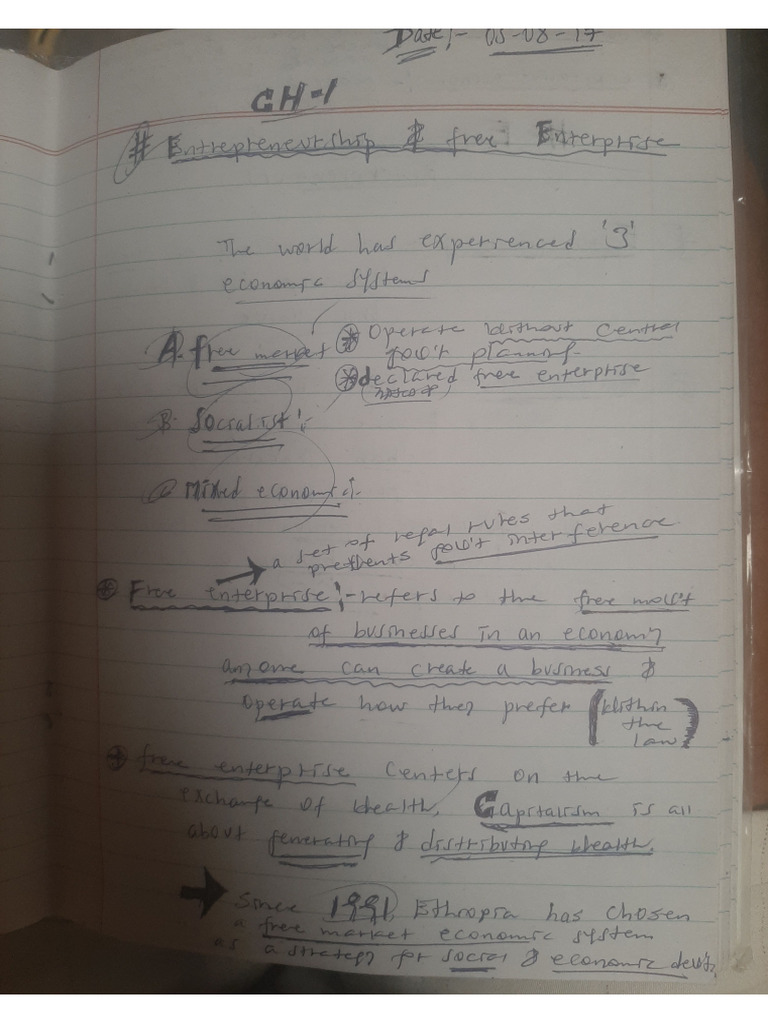 Date:- 05-08-17
CH-1
# Entrepreneurship & free Enterprise
The world has experienced '3'
economic systems
A. free market * Operate without central
gov't planning.
* declared free enterprise
B. Socialist:-
C. Mixed economic:-
a set of legal rules that
prevents gov't interference.
* Free enterprise:- refers to the free mov't
of businesses in an economy
anyone can create a business &
operate how they prefer (within
the
law)
free enterprise centers on the
exchange of wealth. Capitalism is all
about generating & distributing wealth.
Since 1991, Ethiopia has chosen
a free market economic system
as a strategy for social & economic dev't.